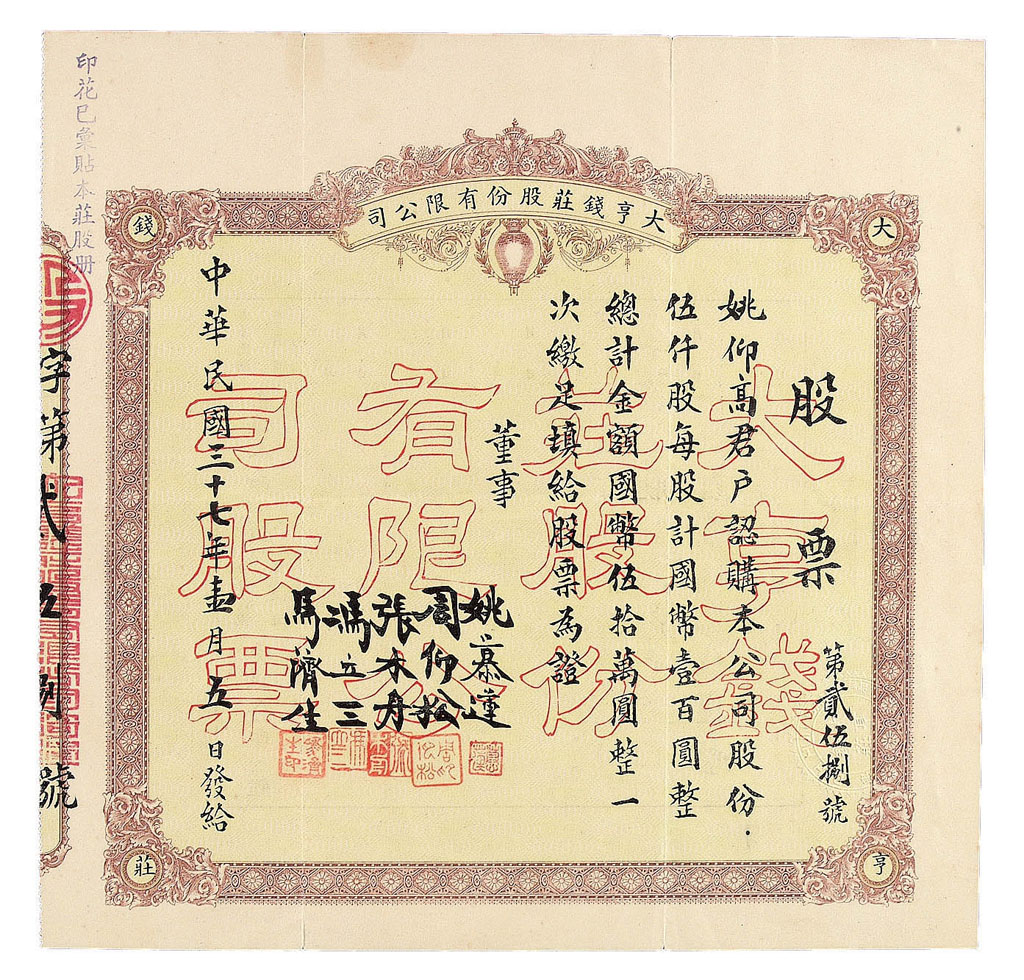 印花已彙貼本莊股册
大亨錢莊股份有限公司
大
亨
錢
莊
股票
第貳伍捌號
姚仰高君戶認購本公司股份
伍仟股每股計國幣壹百圓整
總計金額國幣伍拾萬圓整一
次繳足填給股票為證
董事
姚慕蓮
周仰松
張木舟
馮立三
馬濟生
中華民國三十七年壹月五日發給
大亨錢
莊股份
有限公
司股票
字第貳伍捌號